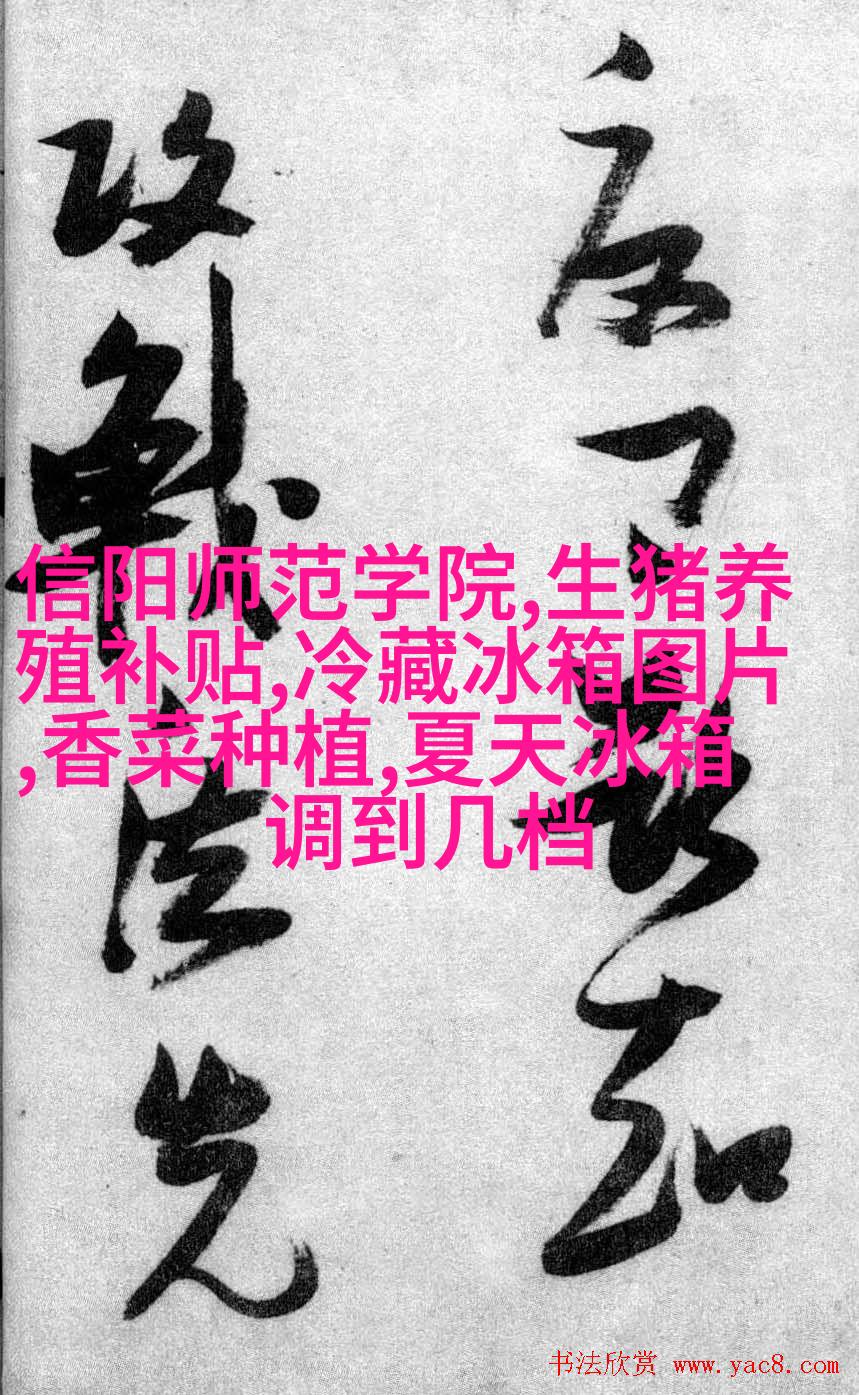 知
攻戰法先
信阳师范学院,生猪养
殖补贴,冷藏冰箱图片
,香菜种植,夏天冰箱
调到几档
书法欣赏 www.yac8.com